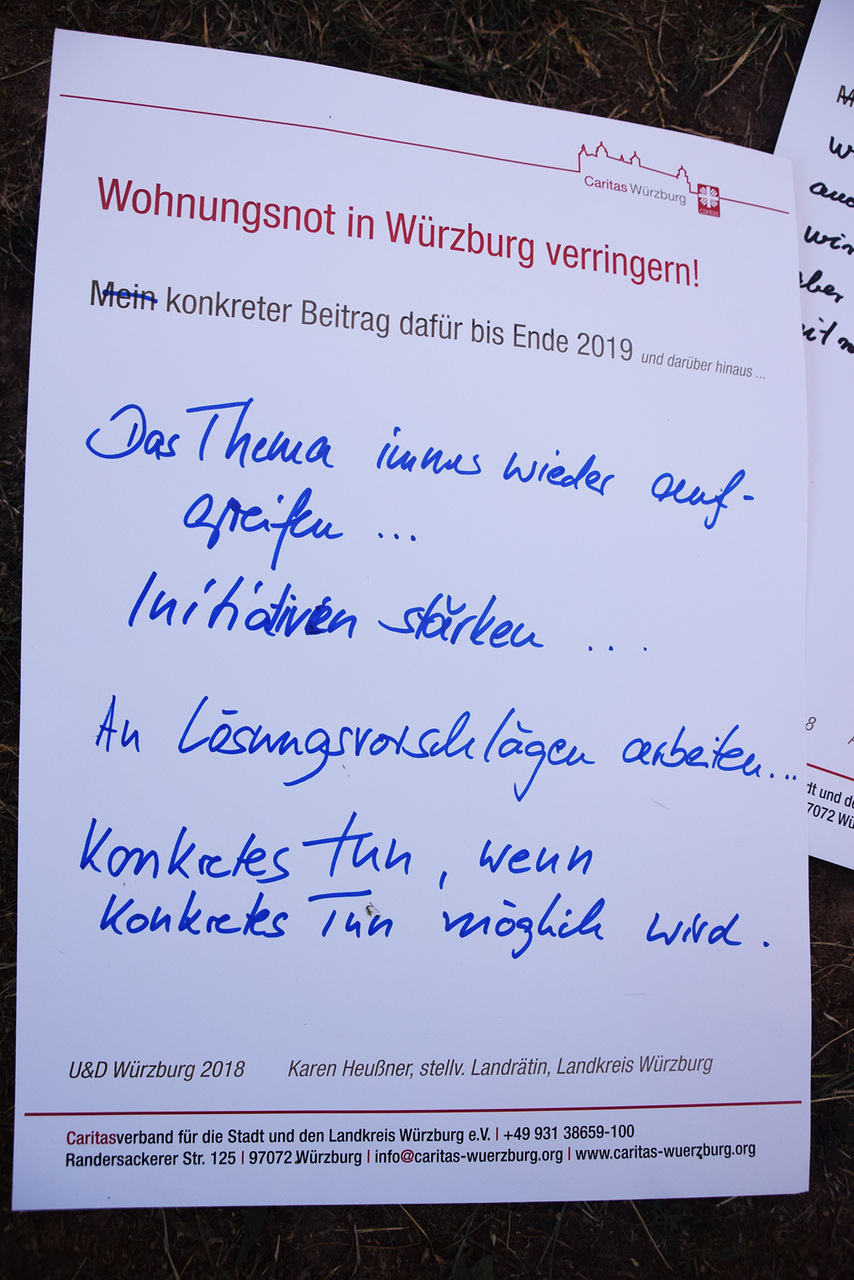 Caritas Würzburg
caritas
Wohnungsnot in Würzburg verringern!
Mein konkreter Beitrag dafür bis Ende 2019 und darüber hinaus ...
Das Thema immer wieder auf-
greifen ...
Initiativen stärken ...
An Lösungsvorschlägen arbeiten...
Konkretes tun, wenn
konkretes Tun möglich wird.
U&D Würzburg 2018 Karen Heußner, stellv. Landrätin, Landkreis Würzburg
Caritasverband für die Stadt und den Landkreis Würzburg e.V. | +49 931 38659-100
Randersackerer Str. 125 | 97072 Würzburg | info@caritas-wuerzburg.org | www.caritas-wuerzburg.org
8
dt und de
7072 Wü